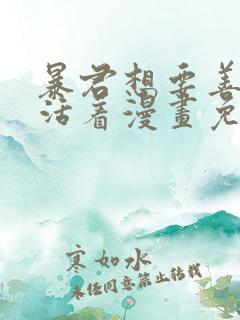 暴君想要善
活着漫畫免
寒如水
未经同意禁止转载